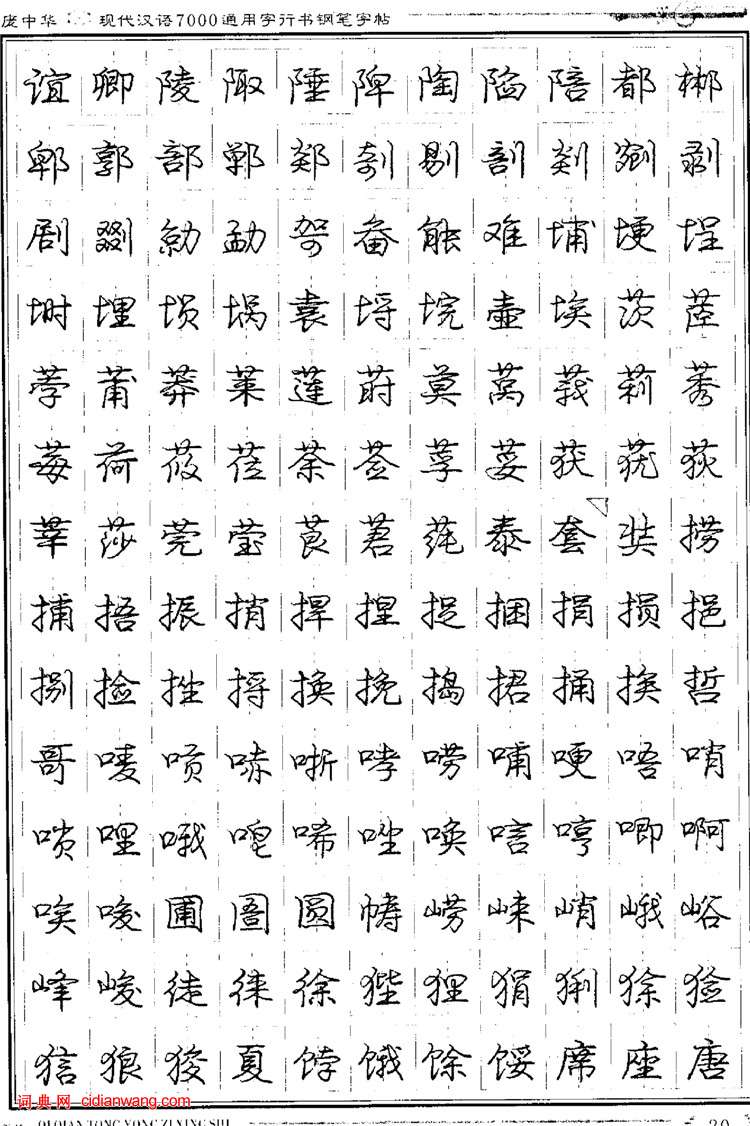 庞中华 现代汉语7000通用字行书钢笔字帖
谊 卿 陵 陬 陲 陴 陶 陷 陪 都 郴
郫 郭 部 郸 郯 剞 剔 剖 剡 剜 剥
剧 剟 勍 勐 哿 畚 能 难 埔 埂 埕
埘 埋 埙 埚 袁 埒 垸 壶 埃 茨 莛
荸 莆 莽 莱 莲 莳 莫 莴 莪 莉 莠
莓 荷 莜 莅 荼 莶 莩 荽 获 莸 荻
莘 莎 莞 莹 莨 莙 莼 泰 套 奘 捞
捕 捂 振 捎 捍 捏 捉 捆 捐 损 挹
捌 捡 挫 捋 换 挽 捣 捃 捅 挨 哲
哥 唛 唝 哧 哳 哮 唠 哺 哽 唔 哨
唢 哩 哦 唣 唏 唑 唤 唁 哼 唧 啊
唉 唆 圃 圄 圆 帱 崂 崃 峭 峨 峪
峰 峻 徒 徕 徐 狴 狸 狷 猁 狳 猃
狺 狼 狻 夏 饽 饿 馀 馁 席 座 唐
词典网 cidianwang.com